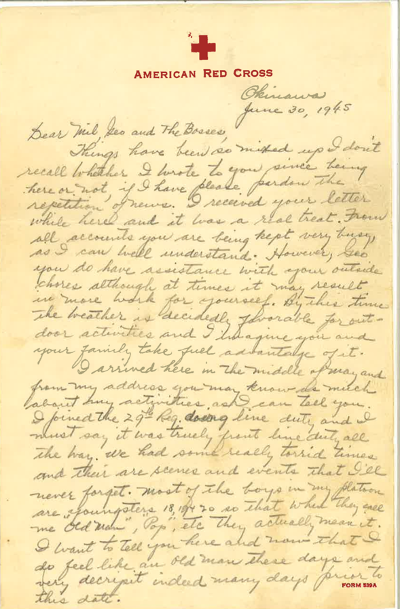 AMERICAN RED CROSS
Okinawa
June 30, 1945
Dear Mil, Geo and The Bosses,
Things have been so mixed up I don't
recall whether I wrote to you since being
here or not, if I have please pardon the
repetition of news. I received your letter
while here and it was a real treat. From
all accounts you are being kept very busy,
as I can well understand. However, Geo
you do have assistance with your outside
chores although at times it may result
in more work for yourself. By this time
the weather is decidedly favorable for out-
door activities and I imagine you and
your family take full advantage of it.
I arrived here in the middle of May and
from my address you may know as much
about my activities as I can tell you.
I joined the 29th Reg. doing line duty and I
must say it was truely front line duty all
the way. We had some really torrid times
and their are scenes and events that I'll
never forget. Most of the boys in my platoon
are youngsters 18, 19 & 20 so that when they call
me "Old Man", "Pop", etc they actually mean it.
I want to tell you here and now that I
do feel like an old man these days and
very decrepit indeed many days prior to
this date.
FORM 539A